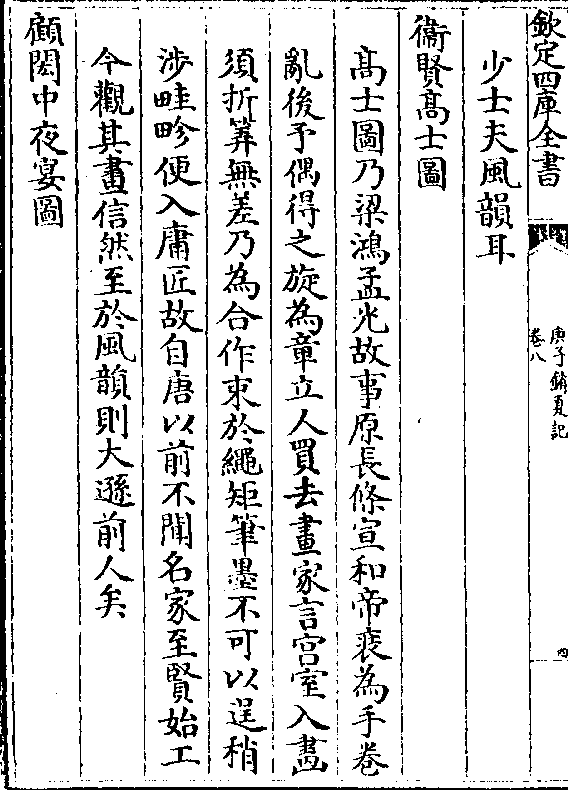 欽定四庫全書
庚子銷夏記
卷八
四
少士夫風韻耳
衛賢髙士圖
髙士圖乃梁鴻孟光故事原長條宣和帝裝為手卷
亂後予偶得之旋為章立人買去畫家言宫室入畫
須折算無差乃為合作束於繩矩筆墨不可以逞稍
涉畦畛便入庸匠故自唐以前不聞名家至賢始工
今觀其畫信然至於風韻則大遜前人矣
顧閎中夜宴圖